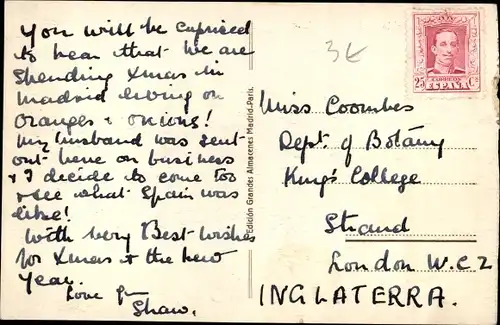 You will be cuprised
to hear that we are
spending Xmas in
Madrid living on
oranges & onions!
My husband was sent
out here on business
& I decide to come too
& see what Spain was
like!
With very Best wishes
for Xmas & the new
year.
Love from
Shaw.
Edición Grandes Almacenes Madrid-Paris.
3€
25
ESPAÑA
Miss Coombes
Dept. of Botany
King's College
Strand
London W.C.2
INGLATERRA.